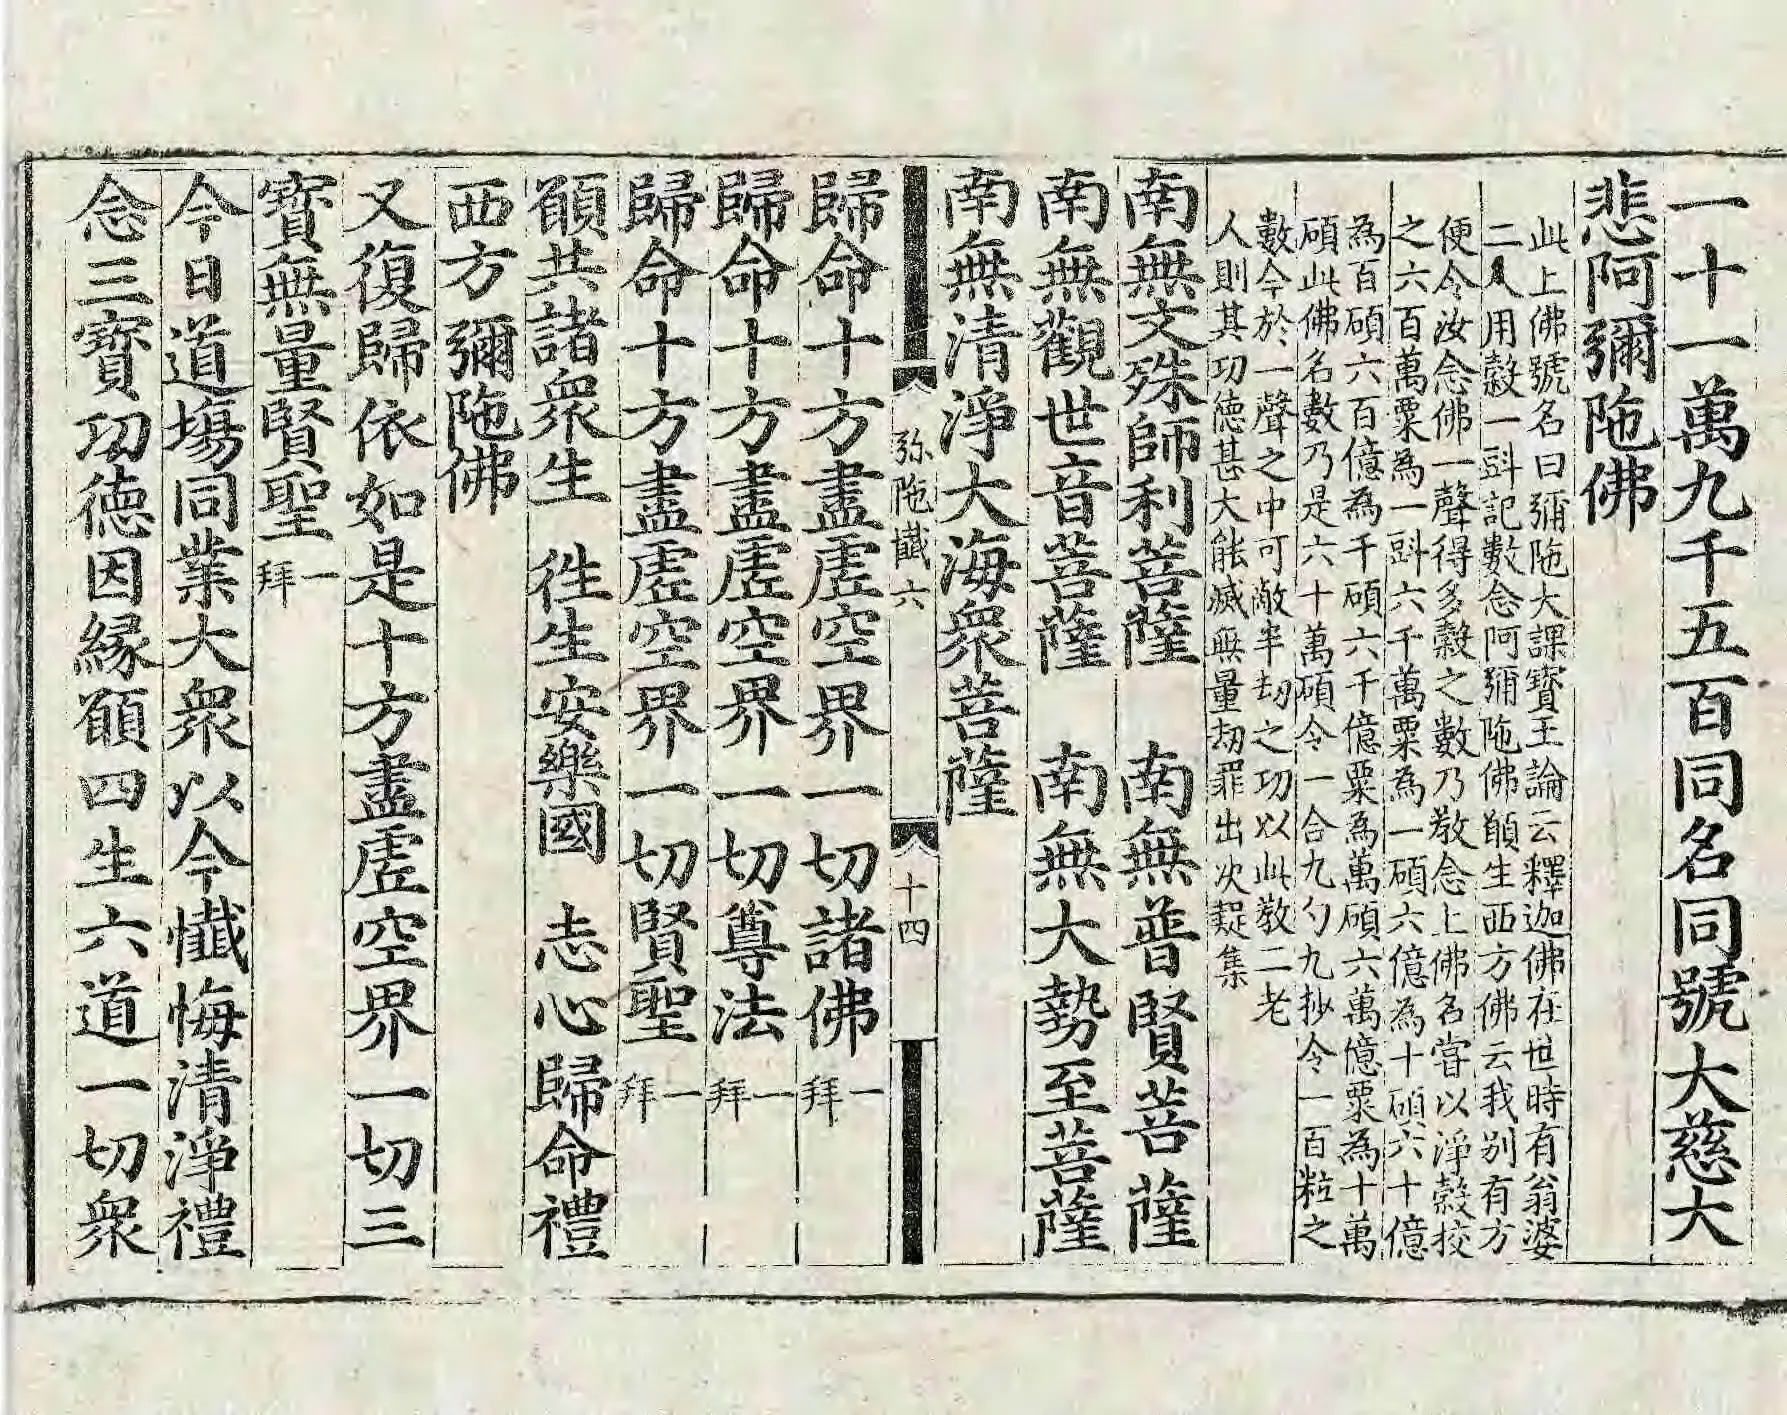 一十一萬九千五百同名同號大慈大
悲阿彌陁佛
此上佛號名曰彌陁大課寳王論云釋迦佛在世時有翁婆
二人用糓一㪷記數念阿彌陁佛願生西方佛云我别有方
便令汝念佛一聲得多糓之數乃教念上佛名甞以淨糓挍
之六百萬粟為一㪷六千萬粟為一碩六億為十碩六十億
為百碩六百億為千碩六千億粟為萬碩六萬億粟為十萬
碩此佛名數乃是六十萬碩令一合九勺九抄令一百粒之
數今於一聲之中可敵半劫之功以此教二老
人則其功德甚大能滅無量劫罪出次疑集
南無文殊師利菩薩　南無普賢菩薩
南無觀世音菩薩　南無大勢至菩薩
南無清淨大海衆菩薩
弥陁懺六　十四
歸命十方盡虗空界一切諸佛一拜
歸命十方盡虗空界一切尊法一拜
歸命十方盡虗空界一切賢聖一拜
願共諸衆生　徃生安樂國　志心歸命禮
西方彌陁佛
又復歸依如是十方盡虗空界一切三
寳無量賢聖一拜
今日道場同業大衆以今懺悔清淨禮
念三寳功德因緣願四生六道一切衆